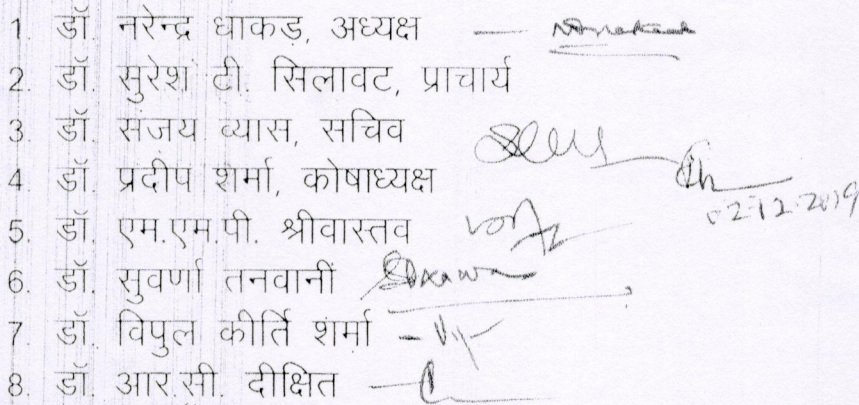 1. डॉ. नरेन्द्र धाकड़, अध्यक्ष —
2. डॉ. सुरेश टी. सिलावट, प्राचार्य
3. डॉ. संजय व्यास, सचिव
4. डॉ. प्रदीप शर्मा, कोषाध्यक्ष
02-12-2019
5. डॉ. एम.एम.पी. श्रीवास्तव
6. डॉ. सुवर्णा तनवानी
7. डॉ. विपुल कीर्ति शर्मा -
8. डॉ. आर.सी. दीक्षित —